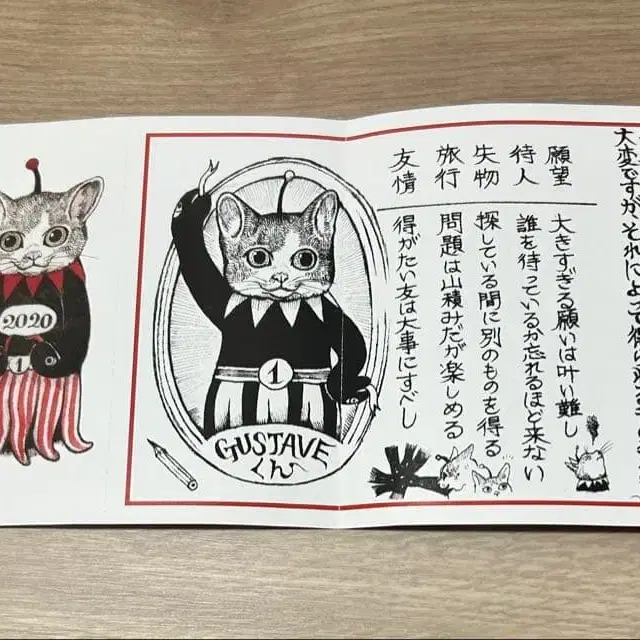 大変ですが、それによって得
願望 大きすぎる願いは叶い難し
待人 誰を待っているか忘れるほど来ない
失物 探している間に別のものを得る
旅行 問題は山積みだが楽しめる
友情 得がたい友は大事にすべし
1
GUSTAVE
くん
2020
1